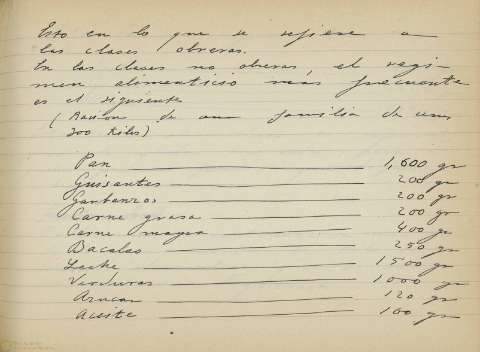 Esto en lo que se refiere a
las clases obreras.
En las clases no obreras, el regi-
men alimenticio más frecuente
es el siguiente
(Racion de una familia de unos
200 Kilos)
Pan 1,600 gr
Guisantes 200 gr
Garbanzos 200 gr
Carne grasa 200 gr
Carne magra 400 gr
Bacalao 250 gr
Leche 1500 gr
Verduras 1000 gr
Azucar 120 gr
Aceite 100 gr